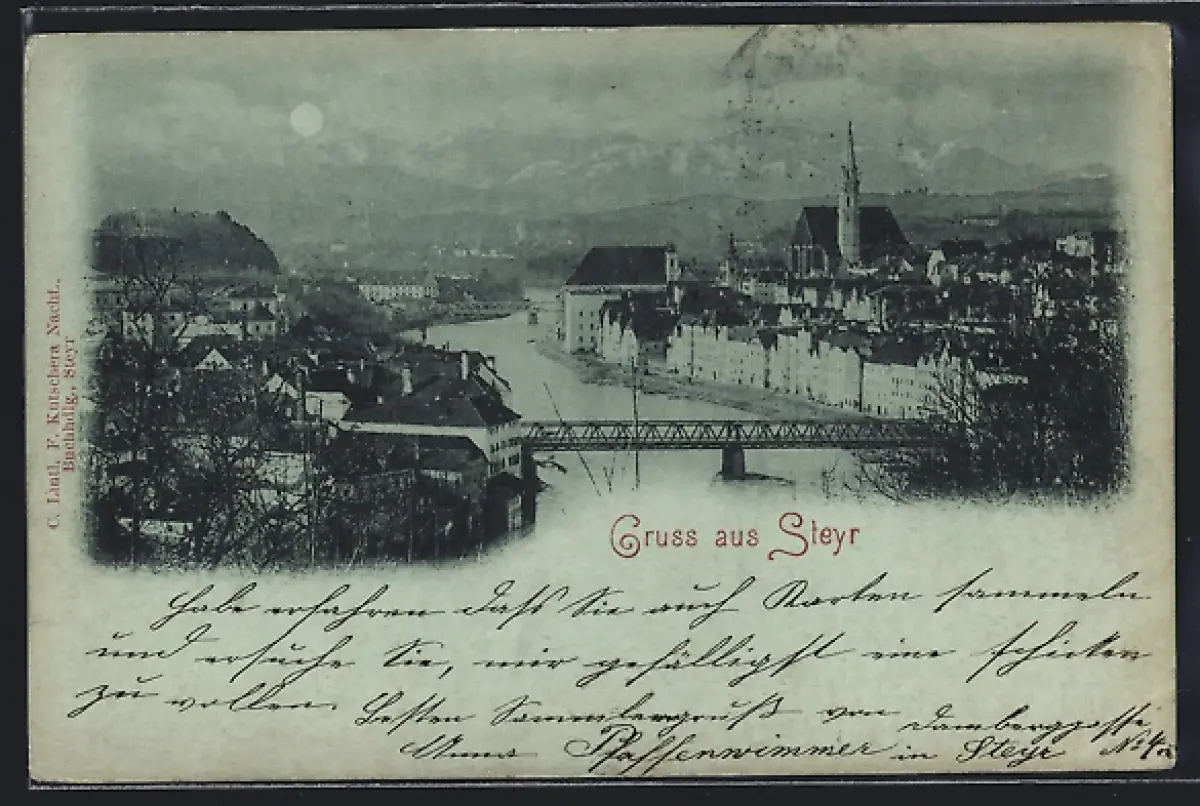 C. Läntl, F. Kutschera Nachf.,
Buchhdlg, Steyr
Gruss aus Steyr
Habe erfahren daß Sie auch Karten sammeln
und ersuche Sie, mir gefälligst eine schicken
zu wollen. Besten Sammlergruß von Damberggasse
Anna Pfaffenwimmer in Steyr No